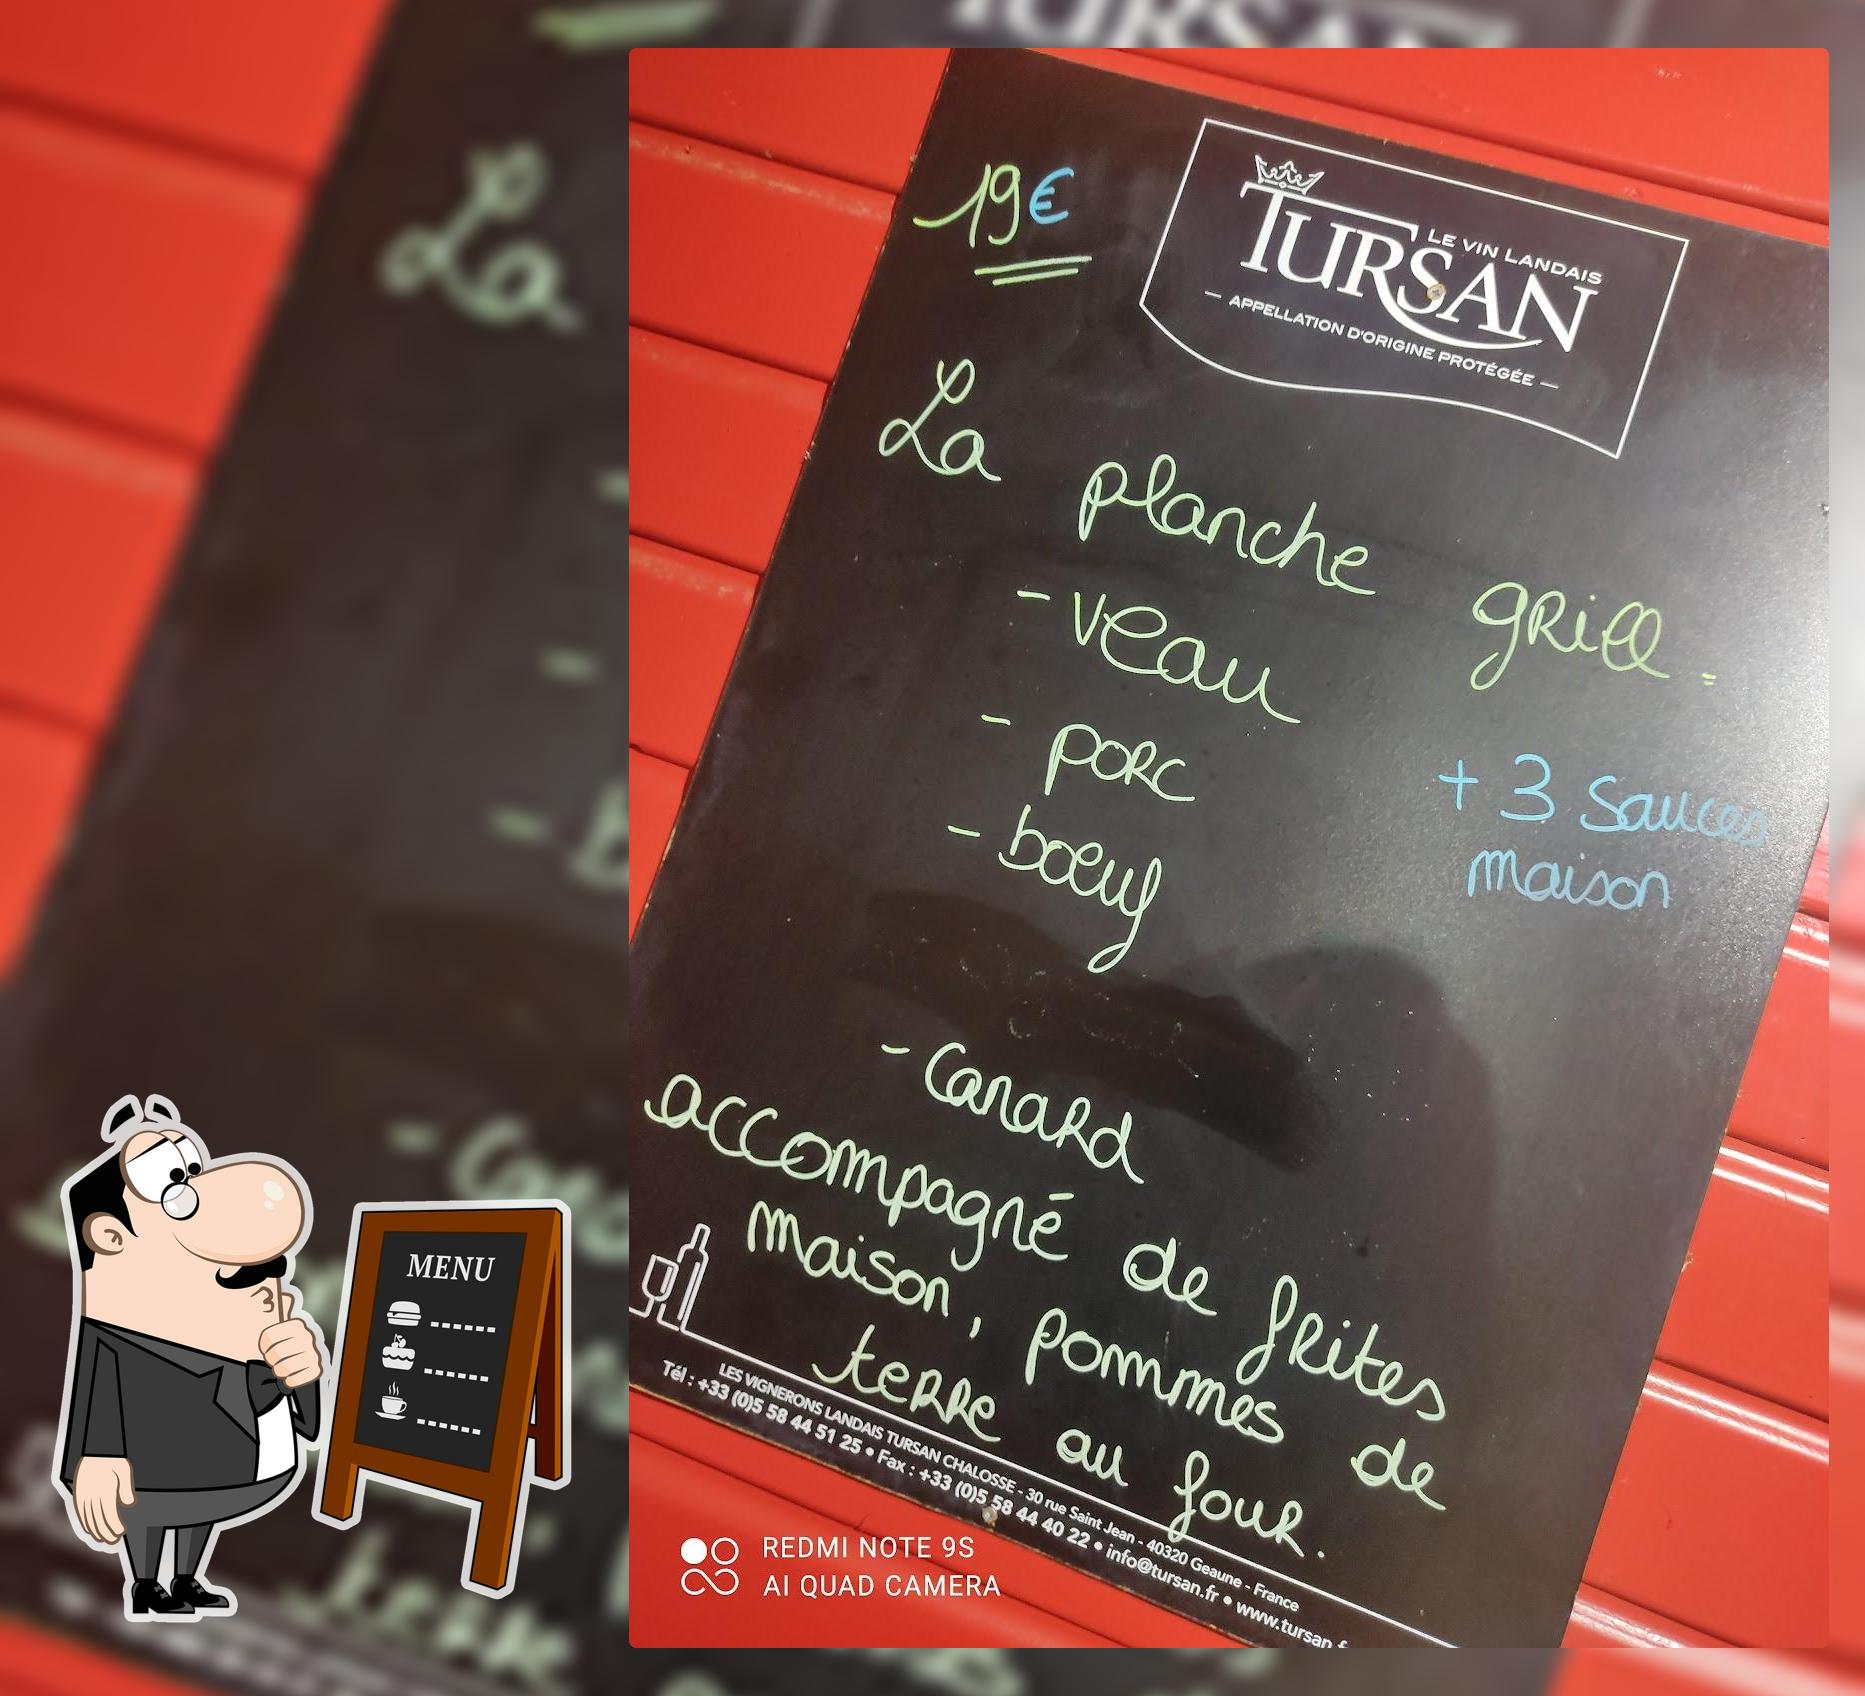 19€
LE VIN LANDAIS
TURSAN
— APPELLATION D'ORIGINE PROTÉGÉE —
La planche grill =
- veau
- porc
+ 3 sauces
maison
- bœuf
- canard
accompagné de frites
maison, pommes de
terre au four.
LES VIGNERONS LANDAIS TURSAN CHALOSSE - 30 rue Saint Jean - 40320 Geaune - France
Tél : +33 (0)5 58 44 51 25 • Fax : +33 (0)5 58 44 40 22 • info@tursan.fr • www.tursan.f
REDMI NOTE 9S
AI QUAD CAMERA
MENU